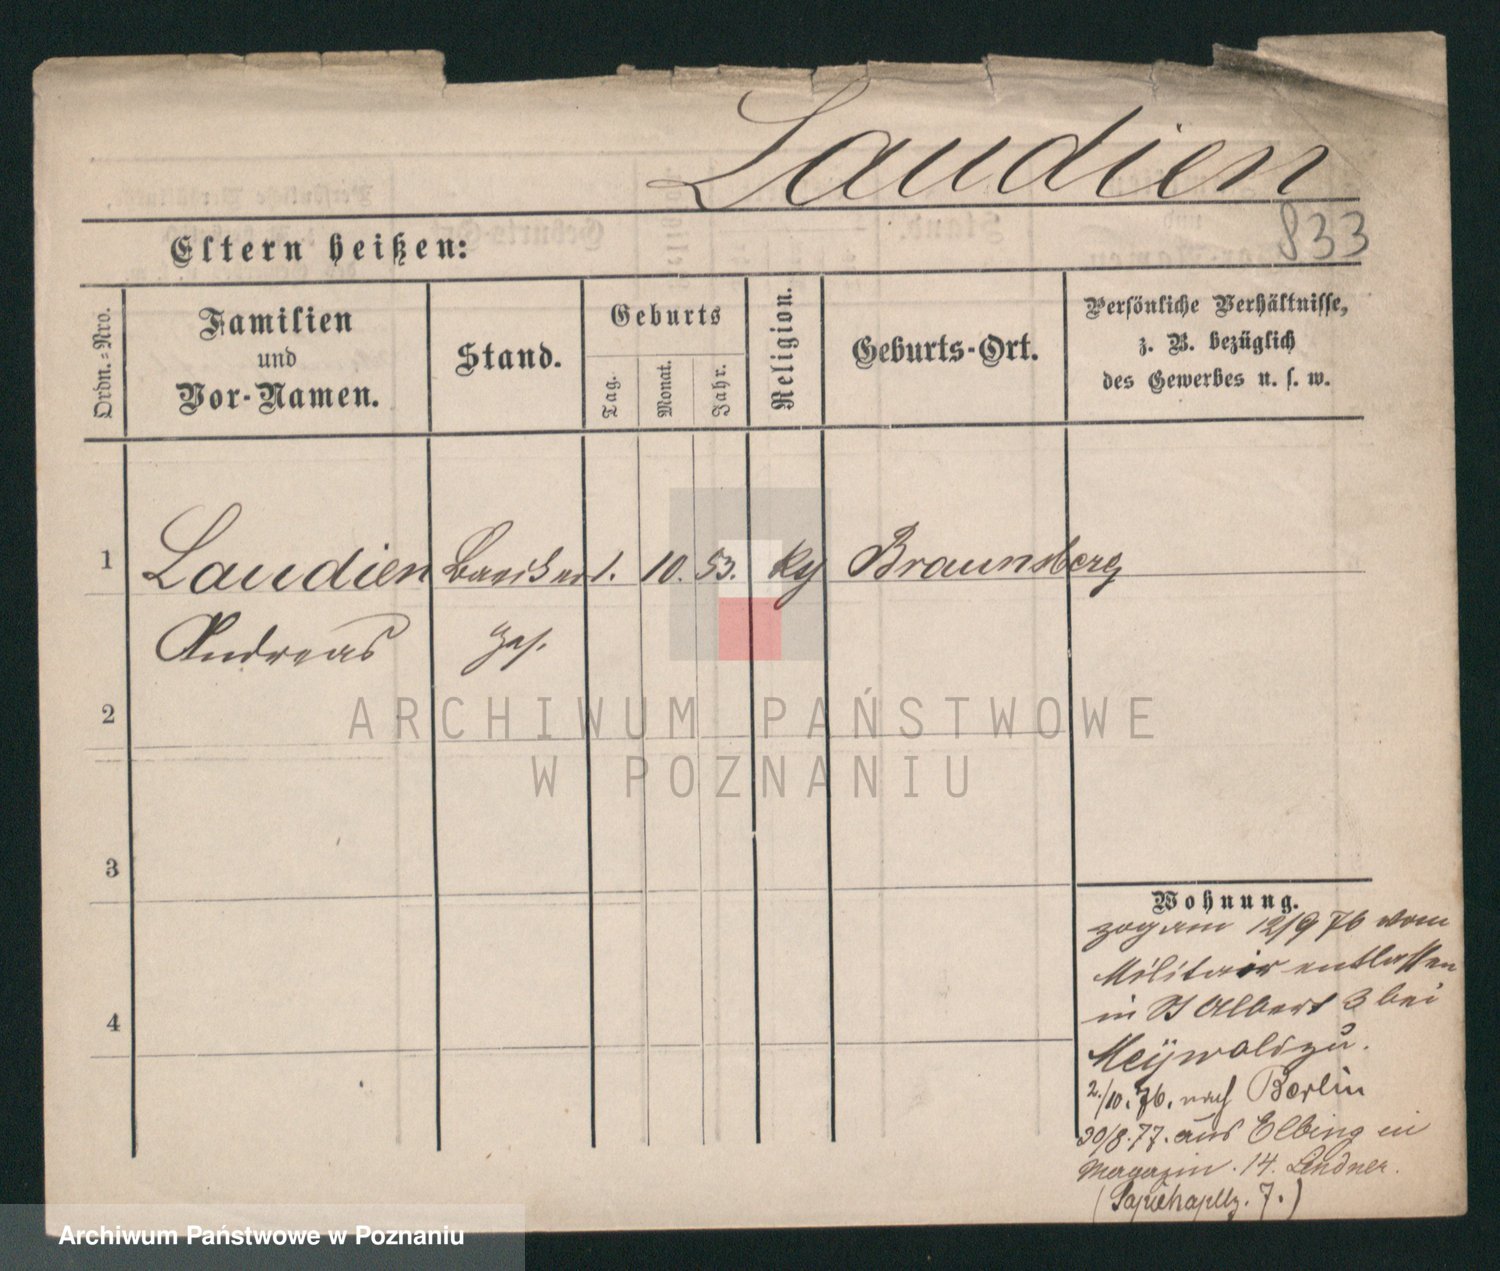 Laudien
833
Eltern heißen:
Ordn.-Nro.
Familien
und
Vor-Namen.
Stand.
Geburts
Tag.
Monat.
Jahr.
Religion.
Geburts-Ort.
Persönliche Verhältnisse,
z. B. bezüglich
des Gewerbes u. s. w.
1
Laudien
1. 10. 53.
Braunsberg
Andreas
Ges.
2
3
4
Wohnung.
zog am 12/9 76 vom
Militair entlassen
in St Albert 3 bei
Meÿwald zu.
2./10.76. nach Berlin
30/8.77. aus Elbing in
Magazin. 14. Lindner.
(Sapiehapltz. 7.)
ARCHIWUM PAŃSTWOWE
W POZNANIU
Archiwum Państwowe w Poznaniu